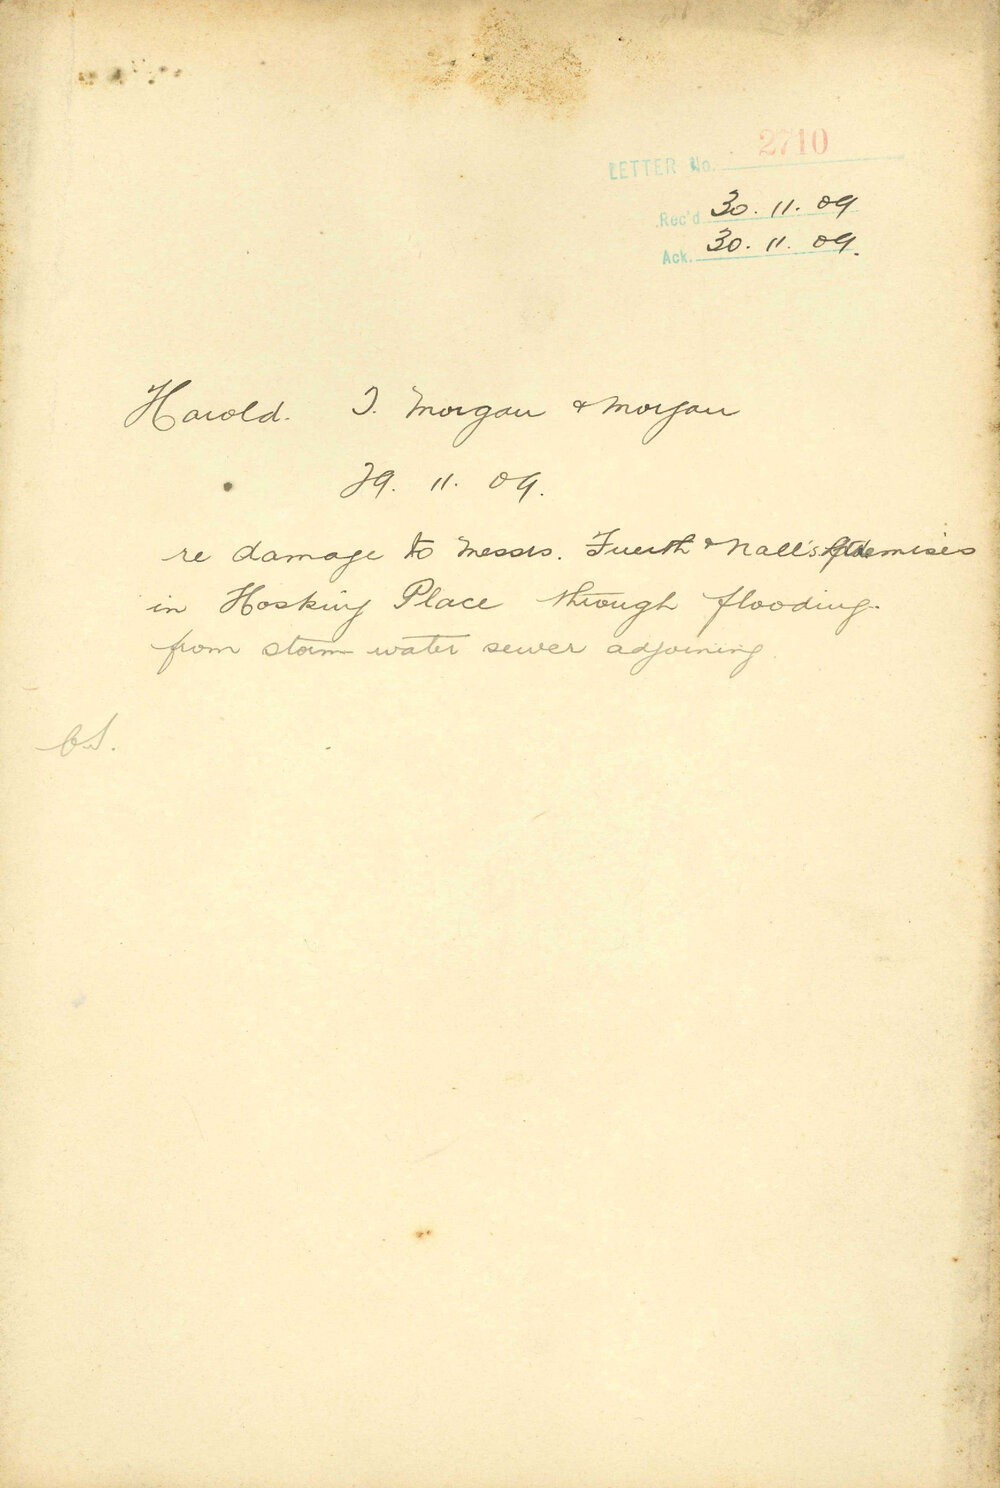 LETTER No. 2710
Rec'd 30. 11. 09
Ack. 30. 11. 09.
Harold. T. Morgan & Morgan
29. 11. 09.
re damage to Messrs. Fuerth & Nall's Premises
in Hosking Place through flooding
from storm water sewer adjoining